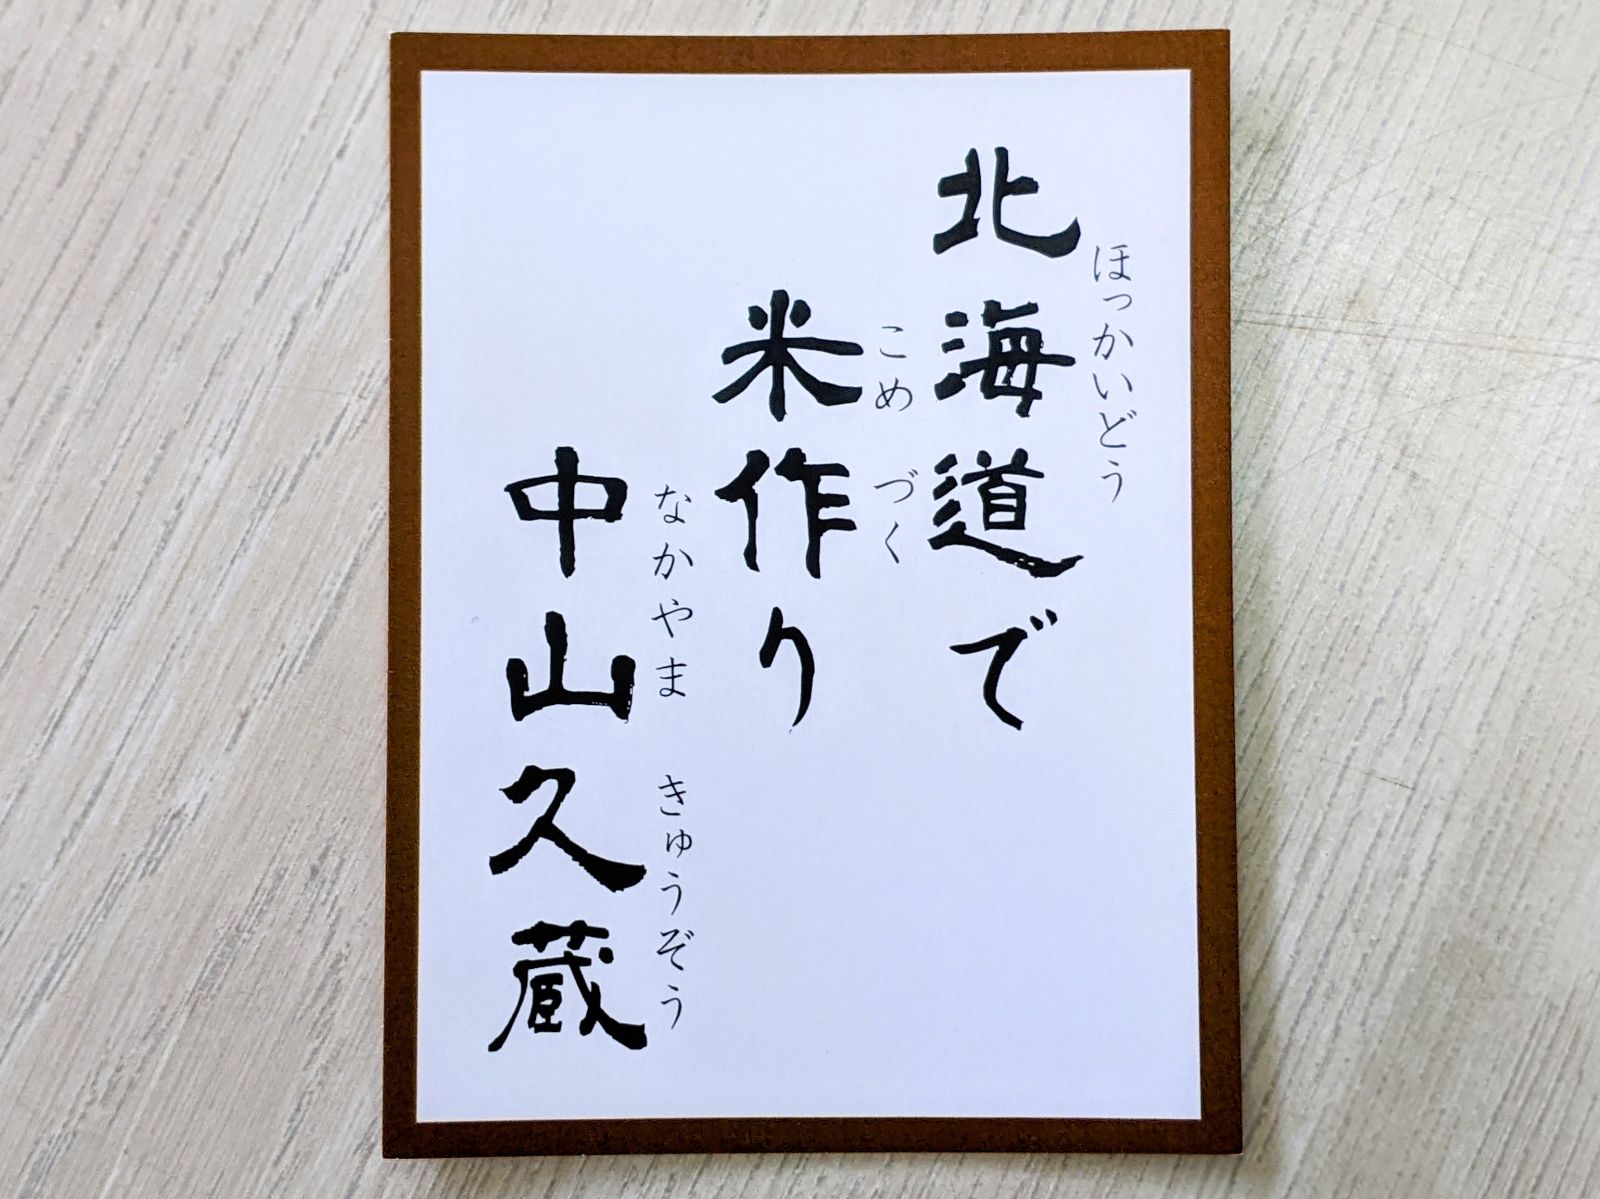 ほっかいどう
北海道で
こめづく
米作り
なかやまきゅうぞう
中山久蔵